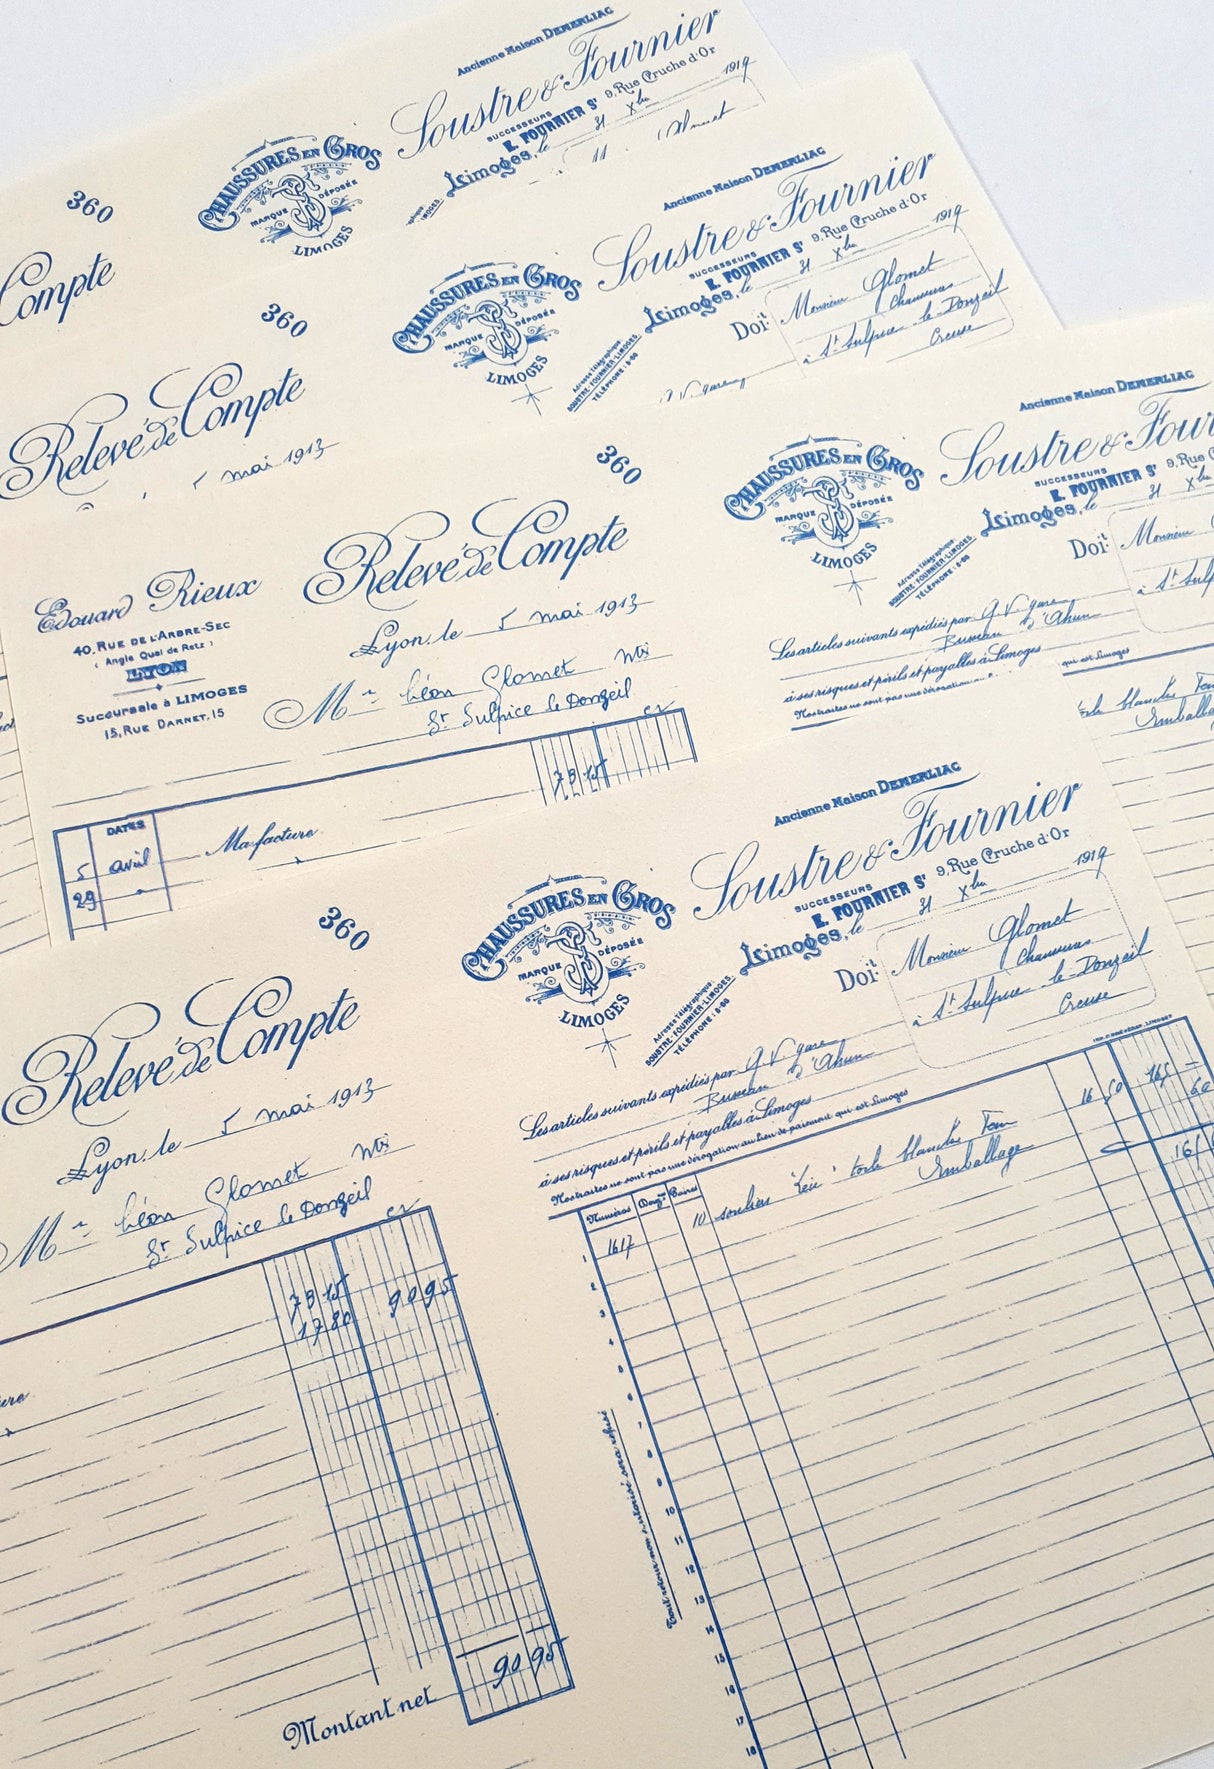 Ancienne Maison DEMERLIAC
Soustre & Fournier
SUCCESSEURS
E. FOURNIER Sr 9, Rue Cruche d'Or
Limoges, le 31 Xbre 1919
11
CHAUSSURES EN GROS
MARQUE DÉPOSÉE
LIMOGES
360
Compte
Ancienne Maison DEMERLIAC
Soustre & Fournier
SUCCESSEURS
E. FOURNIER Sr 9, Rue Cruche d'Or
Limoges, le 31 Xbre 1919
Doit
Monsieur Glomet
Chaussures
à St Sulpice le Donzeil
Creuse
CHAUSSURES EN GROS
MARQUE DÉPOSÉE
LIMOGES
Adresse Télégraphique:
SOUSTRE-FOURNIER-LIMOGES.
TÉLÉPHONE: 8-60
G. V. gare
360
Relevé de Compte
5 mai 1913
Ancienne Maison DEMERLIAC
Soustre & Four
SUCCESSEURS
E. FOURNIER Sr 9, Rue C
Limoges, le 31 Xb
Doit
Monsieur
à St Sulp
CHAUSSURES EN GROS
MARQUE DÉPOSÉE
LIMOGES
Adresse Télégraphique:
SOUSTRE-FOURNIER-LIMOGES.
TÉLÉPHONE: 8-60
Les articles suivants expédiés par G. V. gare
Bureau d'Ahun
à ses risques et périls et payables à Limoges
qui est Limoges
toile blanche
Emballag
360
Relevé de Compte
Edouard Rieux
40, RUE DE L'ARBRE-SEC
( Angle Quai de Retz )
LYON
Succursale à LIMOGES
15, RUE DARNET, 15
Lyon, le 5 mai 1913
Mr Léon Glomet
St Sulpice le Donzeil
79 15
DATES
5 avril Ma facture
29
Ancienne Maison DEMERLIAC
Soustre & Fournier
SUCCESSEURS
E. FOURNIER Sr 9, Rue Cruche d'Or
Limoges, le 31 Xbre 1919
Doit
Monsieur Glomet
Chaussures
à St Sulpice le Donzeil
Creuse
CHAUSSURES EN GROS
MARQUE DÉPOSÉE
LIMOGES
Adresse Télégraphique:
SOUSTRE-FOURNIER-LIMOGES.
TÉLÉPHONE: 8-60
Les articles suivants expédiés par G. V. gare
Bureau d'Ahun
à ses risques et périls et payables à Limoges
Nos traites ne sont pas une dérogation au lieu de paiement qui est Limoges
Numéros Douznes Paires
1617 10 souliers toile blanche 16 50 165 -
Emballage 60
1
2
3
4
5
6
7
8
9
10
11
12
13
14
15
16
17
18
Tout retour non autorisé sera refusé
360
Relevé de Compte
Lyon, le 5 mai 1913
Mr Léon Glomet
St Sulpice le Donzeil
79 15
17 80 90 95
ure
Montant net 90 95